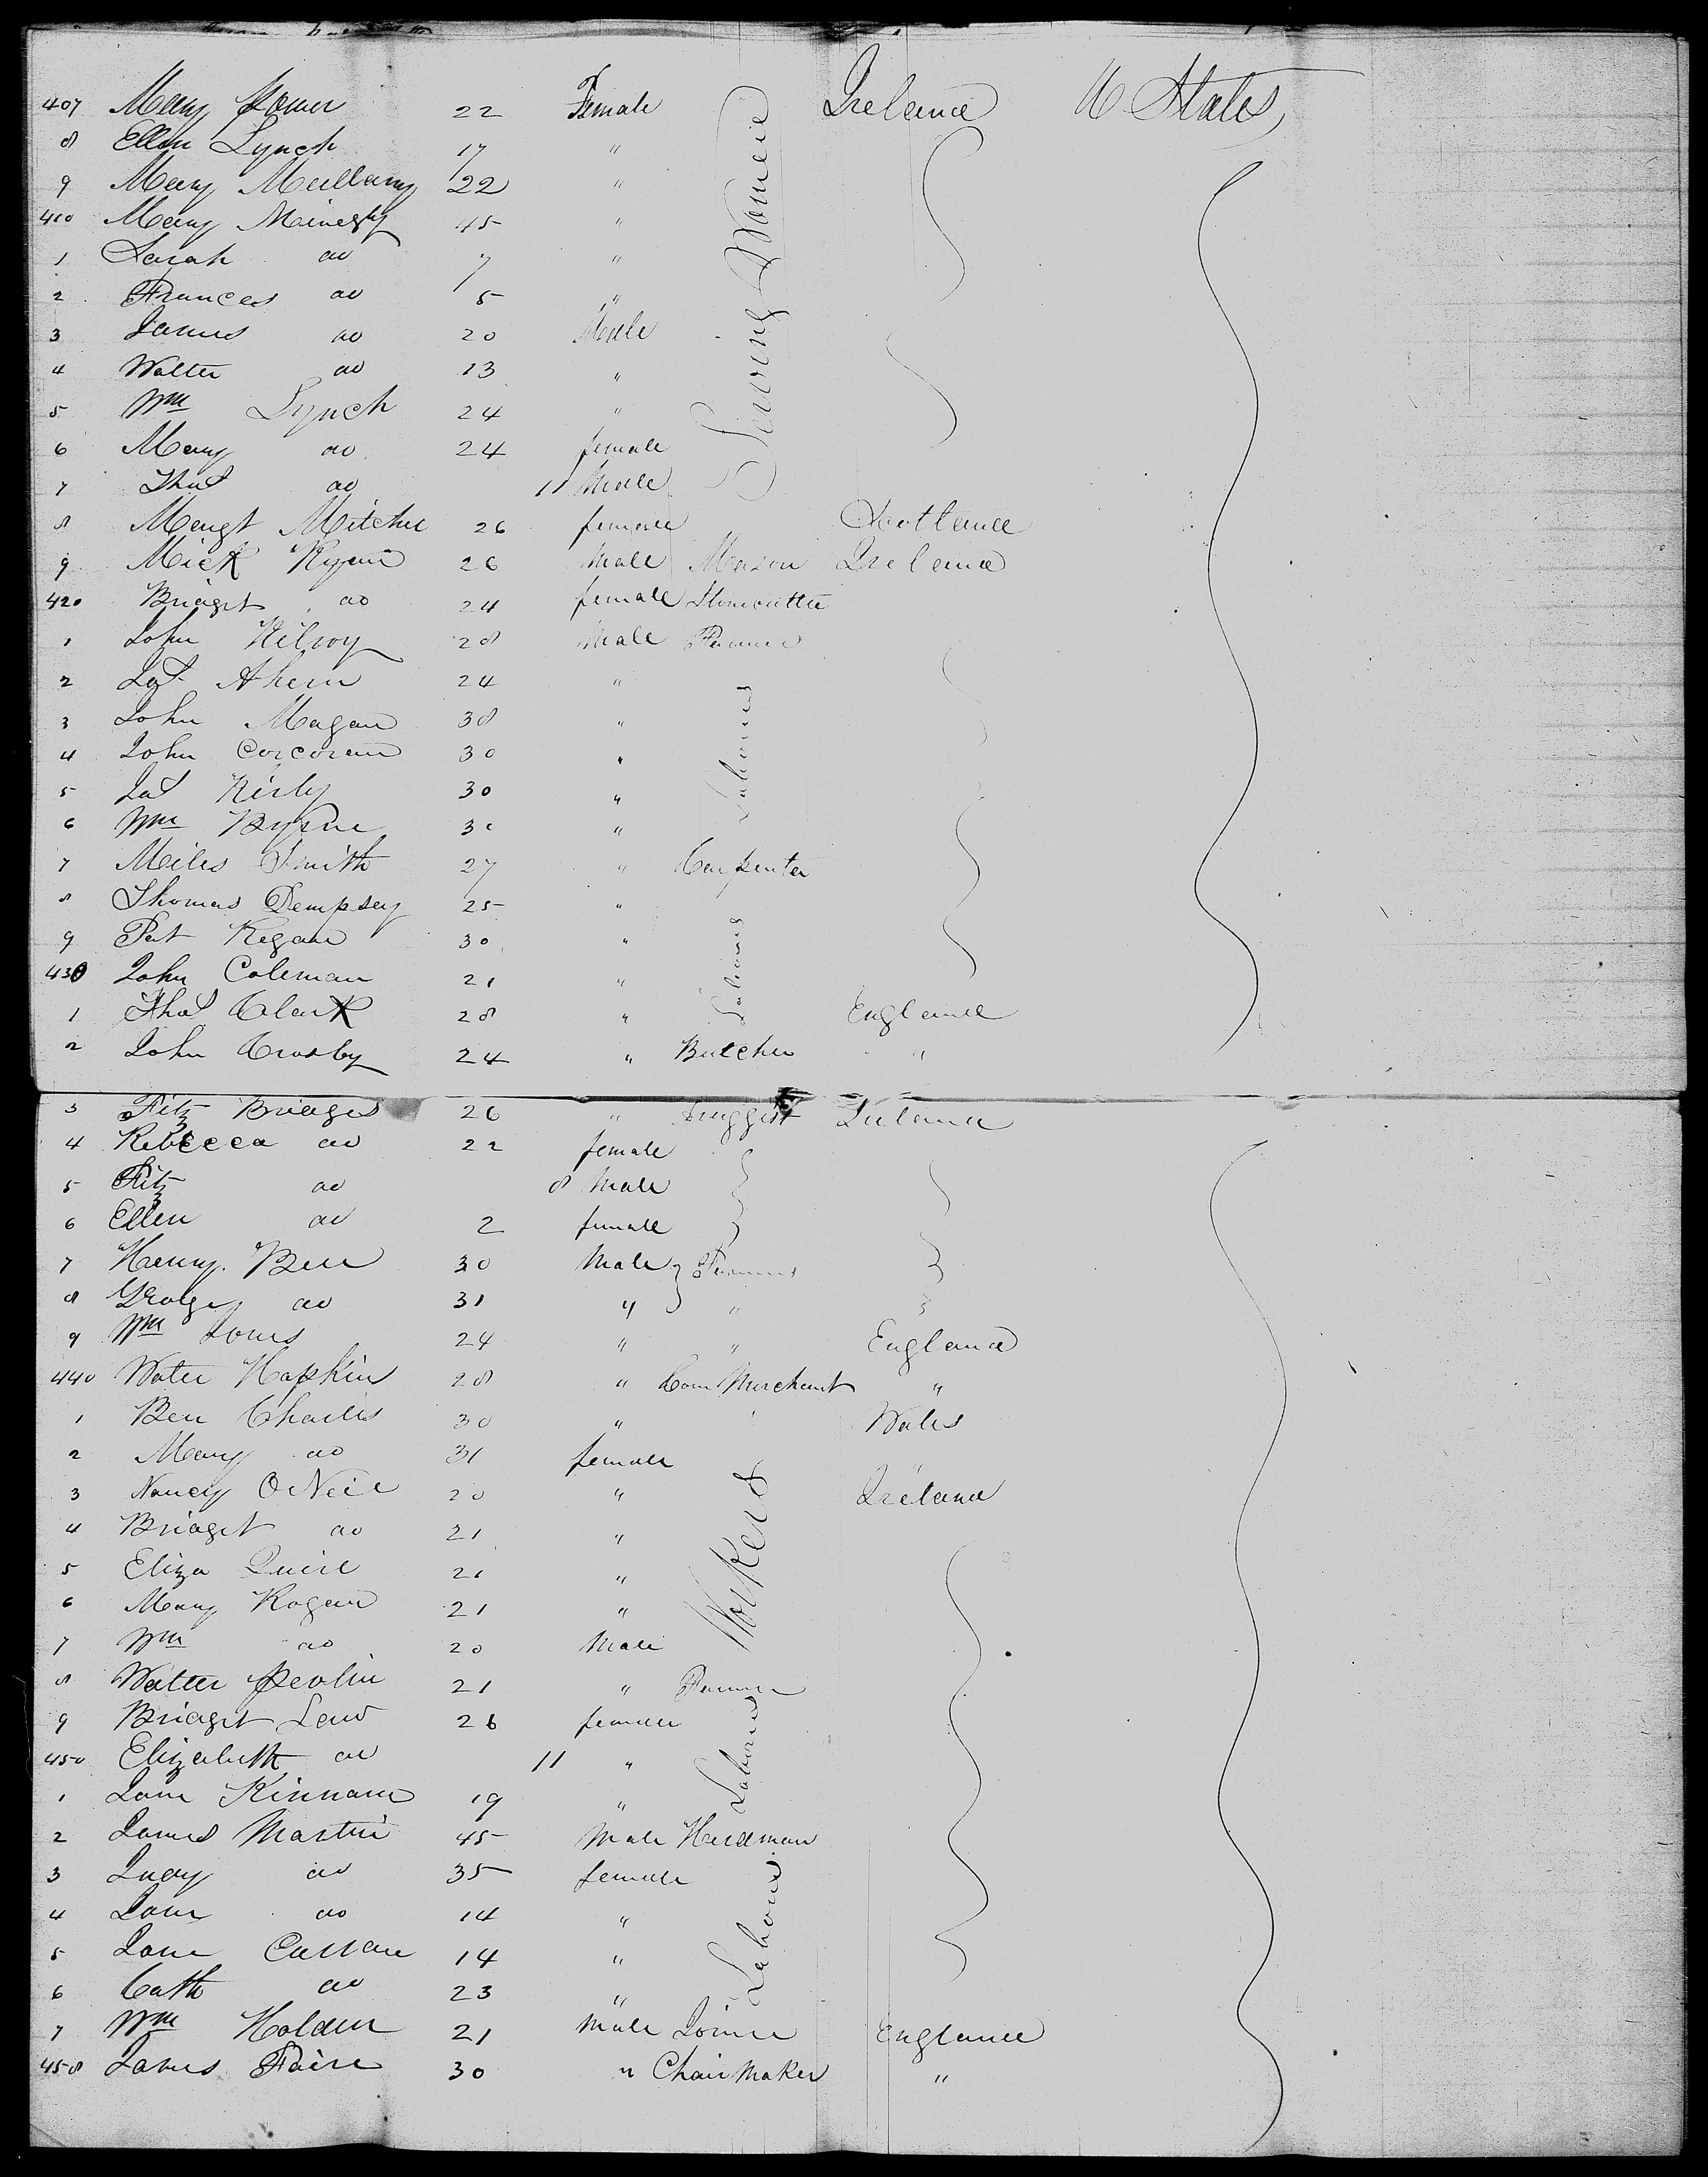 407 Mary Power 22 Female Ireland U States
8 Ellen Lynch 17 "
9 Mary Mullany 22 "
410 Mary 45 "
1 Sarah do 7 "
2 Frances do 5 "
3 James do 20 Male
4 Walter do 13 "
5 Wm Lynch 24 "
6 Mary do 24 female
7 Thos do 11 Male
Serving Women
8 Margt Mitchel 26 female Scotland
9 Mick Ryan 26 Male Mason Ireland
420 Bridget do 24 female Stonecutter
1 John Kilroy 28 Male Farmer
2 Pat Ahern 24 "
3 John Magan 38 "
4 John Corcoran 30 "
5 Pat 30 "
6 Wm Byrne 30 "
Labourers
7 Miles Smith 27 " Carpenter
8 Thomas Dempsey 25 "
9 Pat Regan 30 "
430 John Coleman 21 "
1 Thos Clark 28 " England
Labourers
2 John Crosby 24 " Butcher "
3 Fitz Bridges 26 " Druggist Ireland
4 Rebecca do 22 female
5 Fitz do 8 Male
6 Ellen do 2 female
7 Henry Bell 30 Male Farmers
8 George do 31 " "
9 Wm Jones 24 " " England
440 Water Hopkin 28 " Com Merchant "
1 Ben Charles 30 " Wales
2 Mary do 31 female
3 Nancy ONeil 20 " Ireland
4 Bridget do 21 "
5 Eliza Quirl 21 "
6 Mary Rogan 21 "
7 Wm do 20 Male
Workers
8 Walter Devlin 21 " Farmer
9 Bridget Law 26 female
450 Elizabeth do 11 "
1 Jane Kinnane 19 "
Labourers
2 James Martin 45 Male Herdman
3 Judy do 35 female
4 Jane do 14 "
5 Jane 14 "
6 Cath do 23 "
Labourers
7 Wm Holden 21 Male Joiner England
458 James 30 " Chair Maker "